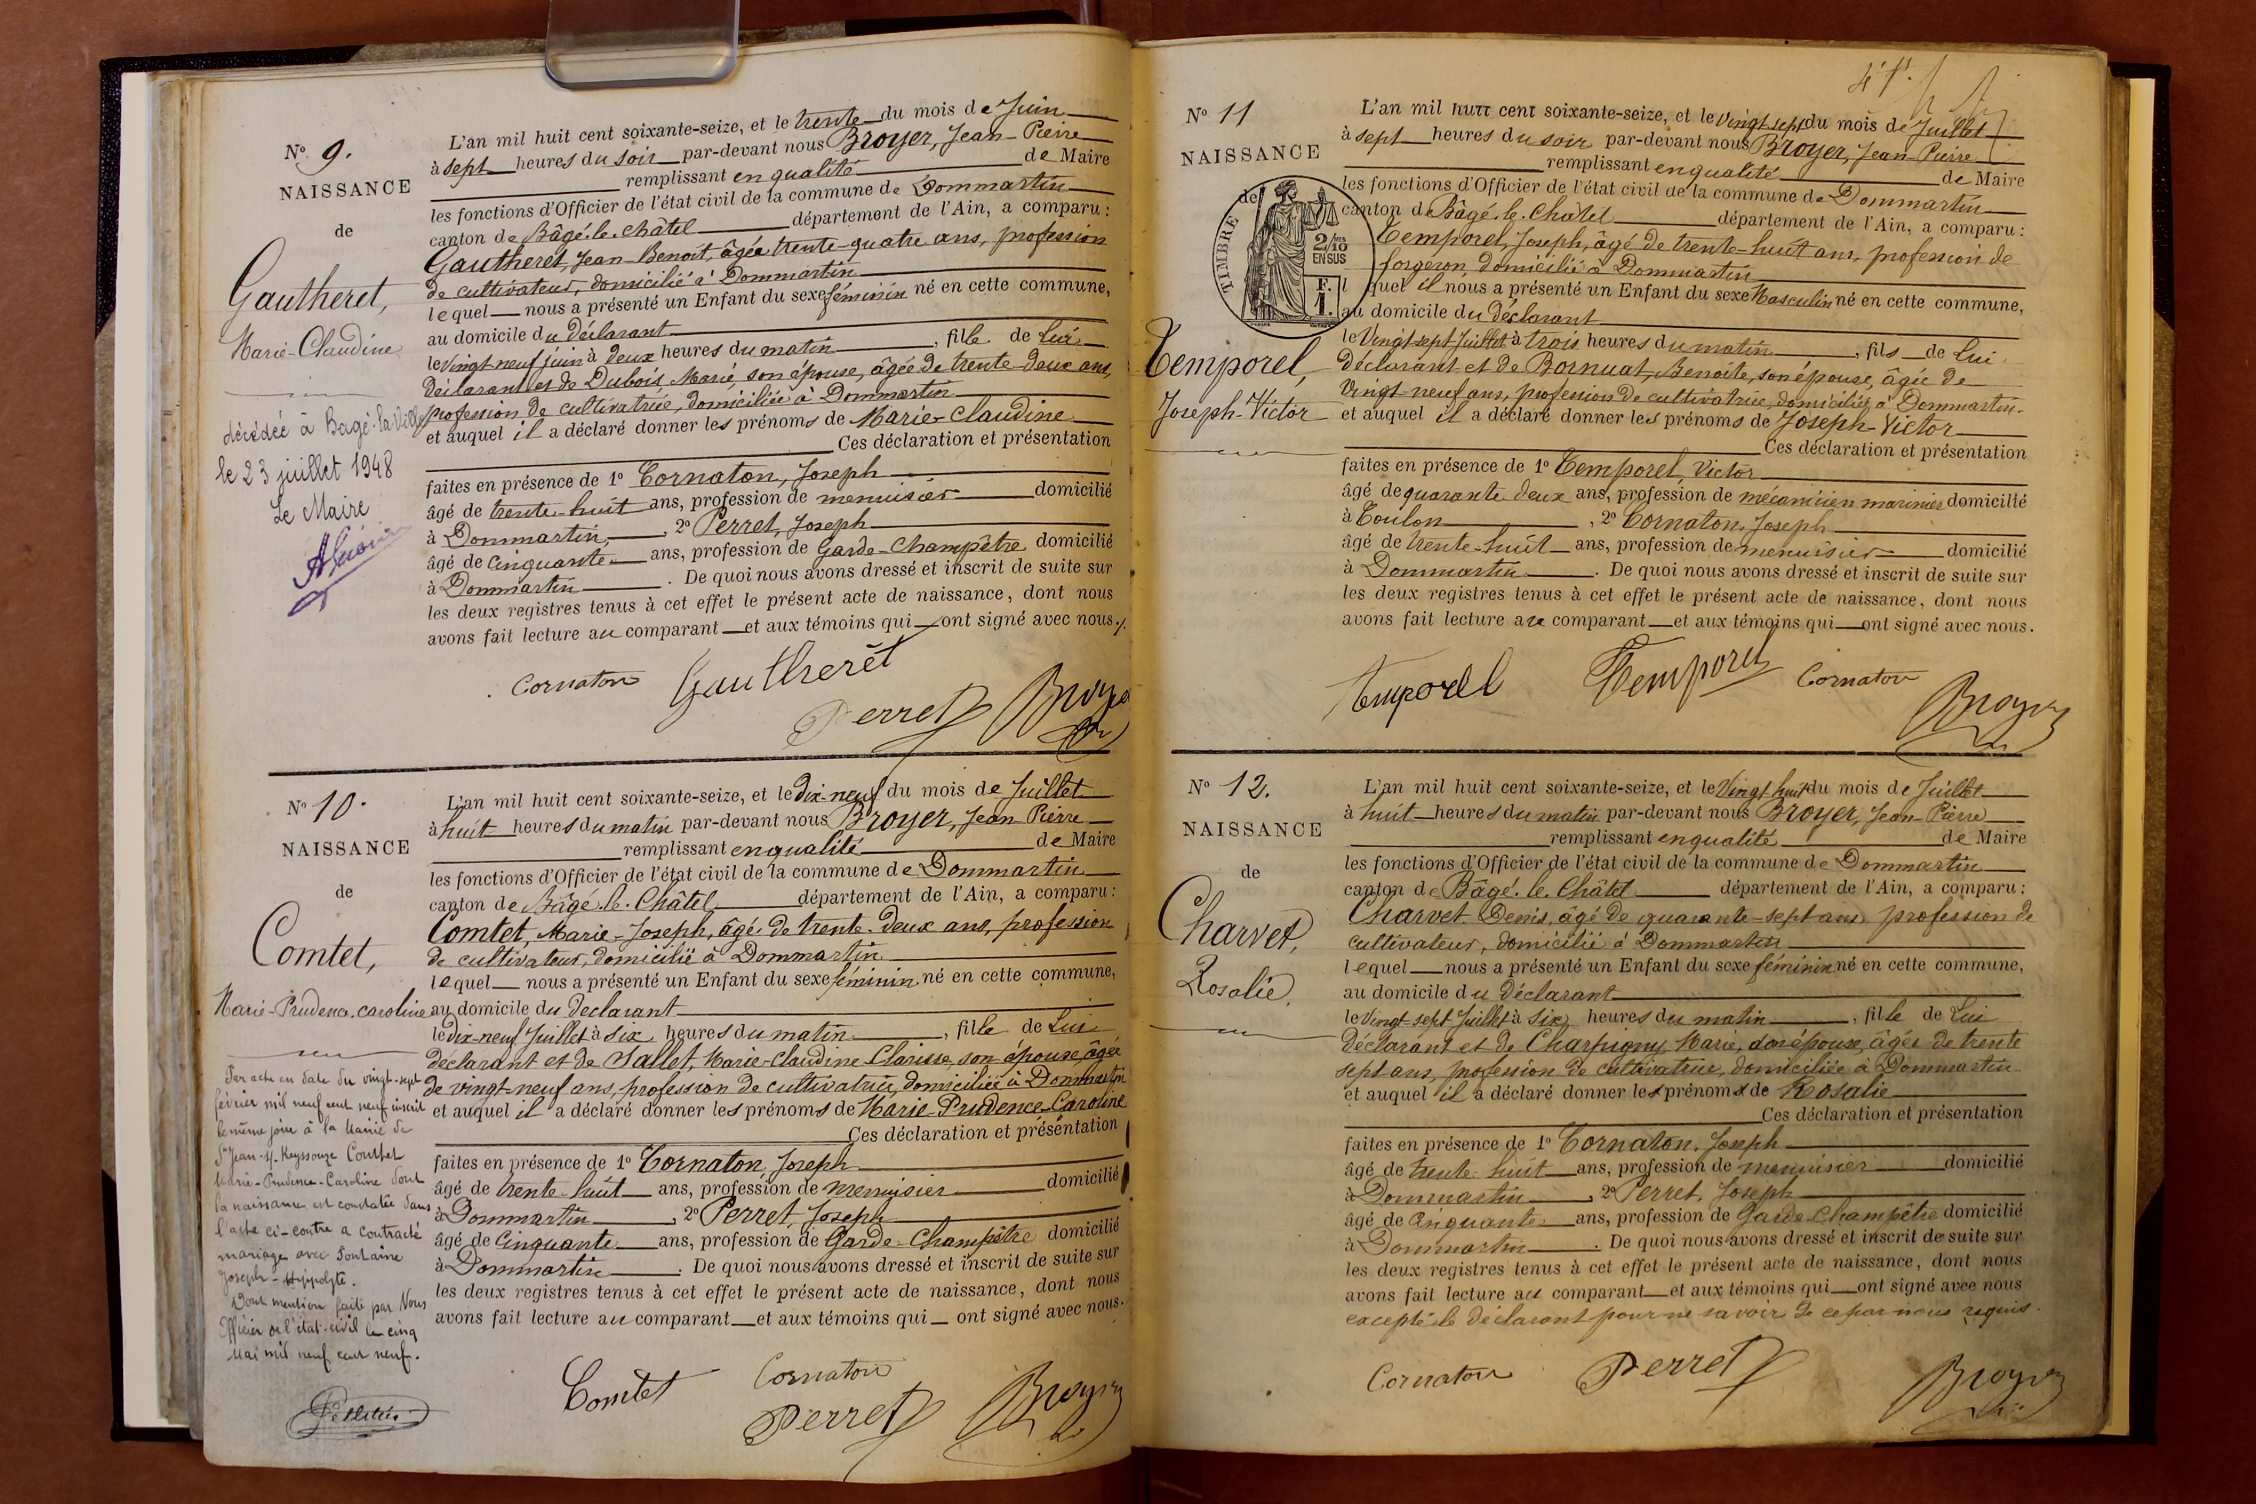 N° 9.
NAISSANCE
de
Gautheret,
Marie-Claudine
décédée à Bagé-la-Ville
le 23 juillet 1948
Le Maire
L'an mil huit cent soixante-seize, et le trente du mois de Juin
à sept heures du soir par-devant nous Broyer, Jean-Pierre
remplissant en qualité de Maire
les fonctions d'Officier de l'état civil de la commune de Dommartin
canton de Bâgé-le-Châtel département de l'Ain, a comparu :
Gautheret, Jean-Benoit, âgée trente-quatre ans, profession
de cultivateur, domicilié à Dommartin
lequel nous a présenté un Enfant du sexe féminin né en cette commune,
au domicile du déclarant
le Vingt neuf juin à deux heures du matin, fille de Lui
déclarant et de Dubois, Marie, son épouse, âgée de trente-deux ans,
profession de cultivatrice, domiciliée à Dommartin
et auquel il a déclaré donner les prénoms de Marie-Claudine
Ces déclaration et présentation
faites en présence de 1° Cornaton, Joseph
âgé de trente-huit ans, profession de menuisier domicilié
à Dommartin, 2° Perret, Joseph
âgé de Cinquante ans, profession de Garde-Champêtre domicilié
à Dommartin. De quoi nous avons dressé et inscrit de suite sur
les deux registres tenus à cet effet le présent acte de naissance, dont nous
avons fait lecture au comparant et aux témoins qui ont signé avec nous./.
Cornaton Gautheret
Perret Broyer
N° 10.
NAISSANCE
de
Comtet,
Marie-Prudence-Caroline
Par acte en date du vingt-sept
février mil neuf cent neuf inscrit
le même jour à la Mairie de
St Jean-s/-Reyssouze Comtet
Marie-Prudence-Caroline dont
la naissance est constatée dans
l'acte ci-contre a contracté
mariage avec Fontaine
Joseph-Hippolyte.
Dont mention faite par Nous
Officier de l'état-civil le cinq
Mai mil neuf cent neuf.
L'an mil huit cent soixante-seize, et le dix-neuf du mois de Juillet
à huit heures du matin par-devant nous Broyer, Jean Pierre
remplissant en qualité de Maire
les fonctions d'Officier de l'état civil de la commune de Dommartin
canton de Bâgé-le-Châtel département de l'Ain, a comparu :
Comtet, Marie-Joseph, âgé de trente-deux ans, profession
de cultivateur, domicilié à Dommartin
lequel nous a présenté un Enfant du sexe féminin né en cette commune,
au domicile du Déclarant
le dix-neuf Juillet à six heures du matin, fille de Lui
déclarant et de Sallet, Marie-Claudine Clarisse, son épouse, âgée
de vingt-neuf ans, profession de cultivatrice, domiciliée à Dommartin
et auquel il a déclaré donner les prénoms de Marie-Prudence-Caroline
Ces déclaration et présentation
faites en présence de 1° Cornaton, Joseph
âgé de trente-huit ans, profession de menuisier domicilié
à Dommartin, 2° Perret, Joseph
âgé de Cinquante ans, profession de Garde-Champêtre domicilié
à Dommartin. De quoi nous avons dressé et inscrit de suite sur
les deux registres tenus à cet effet le présent acte de naissance, dont nous
avons fait lecture au comparant et aux témoins qui ont signé avec nous.
Comtet Cornaton
Perret Broyer
N° 11
NAISSANCE
de
TIMBRE
2/10
EN SUS
F.
1.
Temporel,
Joseph-Victor
L'an mil huit cent soixante-seize, et le vingt sept du mois de Juillet
à sept heures du soir par-devant nous Broyer, Jean-Pierre
remplissant en qualité de Maire
les fonctions d'Officier de l'état civil de la commune de Dommartin
canton de Bâgé-le-Châtel département de l'Ain, a comparu :
Temporel, Joseph, âgé de trente-huit ans, profession de
forgeron, domicilié à Dommartin
lequel il nous a présenté un Enfant du sexe Masculin né en cette commune,
au domicile du déclarant
le Vingt sept Juillet à trois heures du matin, fils de Lui
déclarant et de Bornuat, Benoite, son épouse, âgée de
Vingt-neuf ans, profession de cultivatrice, domiciliée à Dommartin.
et auquel il a déclaré donner les prénoms de Joseph-Victor
Ces déclaration et présentation
faites en présence de 1° Temporel, Victor
âgé de quarante deux ans, profession de mécanicien marinier domicilié
à Toulon, 2° Cornaton, Joseph
âgé de trente-huit ans, profession de menuisier domicilié
à Dommartin. De quoi nous avons dressé et inscrit de suite sur
les deux registres tenus à cet effet le présent acte de naissance, dont nous
avons fait lecture au comparant et aux témoins qui ont signé avec nous.
Temporel Temporel Cornaton
Broyer
N° 12.
NAISSANCE
de
Charvet,
Rosalie.
L'an mil huit cent soixante-seize, et le Vingt huit du mois de Juillet
à huit heures du matin par-devant nous Broyer, Jean-Pierre
remplissant en qualité de Maire
les fonctions d'Officier de l'état civil de la commune de Dommartin
canton de Bâgé-le-Châtel département de l'Ain, a comparu :
Charvet Denis, âgé de quarante-sept ans profession de
cultivateur, domicilié à Dommartin
lequel nous a présenté un Enfant du sexe féminin né en cette commune,
au domicile du déclarant
le vingt-sept Juillet à six heures du matin, fille de Lui
Déclarant et de Charpigny Marie, son épouse, âgée de trente
sept ans, profession de cultivatrice, domiciliée à Dommartin
et auquel il a déclaré donner les prénoms de Rosalie
Ces déclaration et présentation
faites en présence de 1° Cornaton, Joseph
âgé de trente-huit ans, profession de menuisier domicilié
à Dommartin, 2° Perret, Joseph
âgé de cinquante ans, profession de Garde-Champêtre domicilié
à Dommartin. De quoi nous avons dressé et inscrit de suite sur
les deux registres tenus à cet effet le présent acte de naissance, dont nous
avons fait lecture au comparant et aux témoins qui ont signé avec nous
excepté le déclarant pour ne savoir de ce par nous requis.
Cornaton Perret Broyer